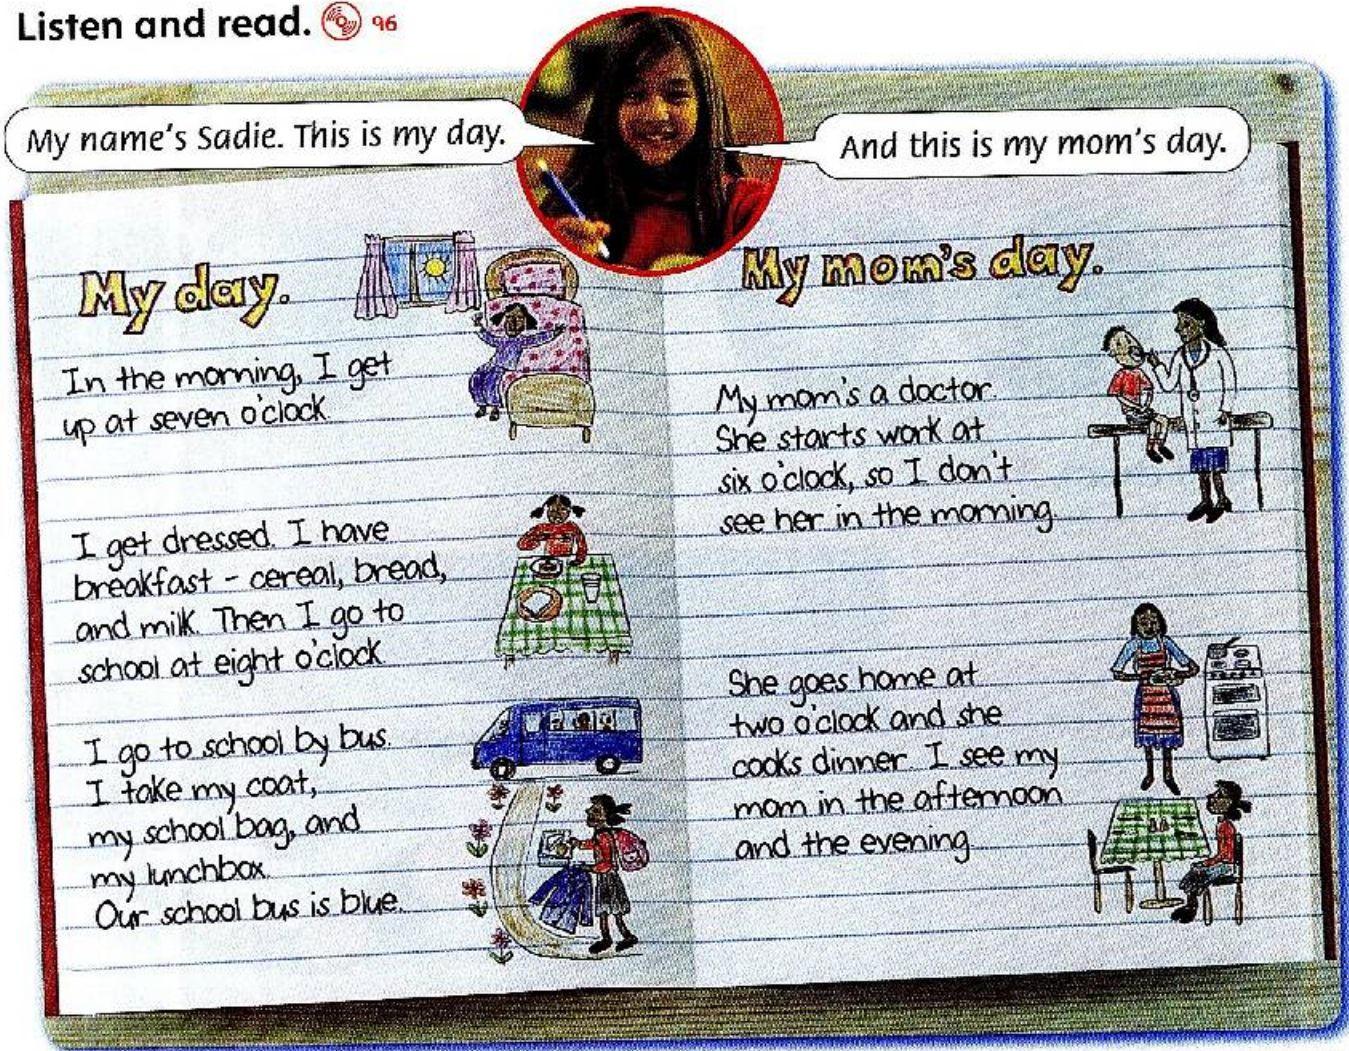 Listen and read. 96
My name's Sadie. This is my day.
And this is my mom's day.
My day.
In the morning, I get
up at seven o'clock.
I get dressed. I have
breakfast – cereal, bread,
and milk. Then I go to
school at eight o'clock
I go to school by bus.
I take my coat,
my school bag, and
my lunchbox.
Our school bus is blue.
My mom's day.
My mom's a doctor.
She starts work at
six o'clock, so I don't
see her in the morning.
She goes home at
two o'clock and she
cooks dinner. I see my
mom in the afternoon
and the evening.